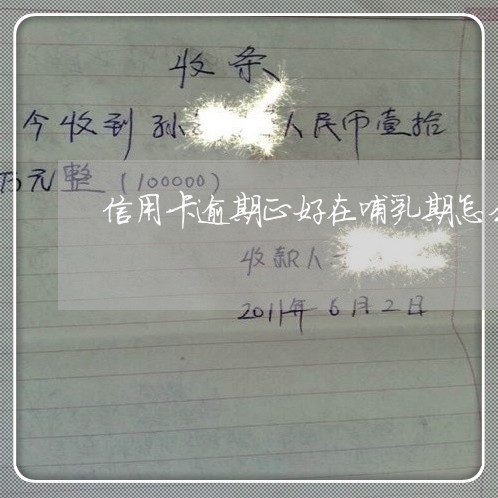 收条
今收到孙 人民币壹拾
万元整(100000)
信用卡逾期正好在哺乳期怎
收款人
2011年6月2日